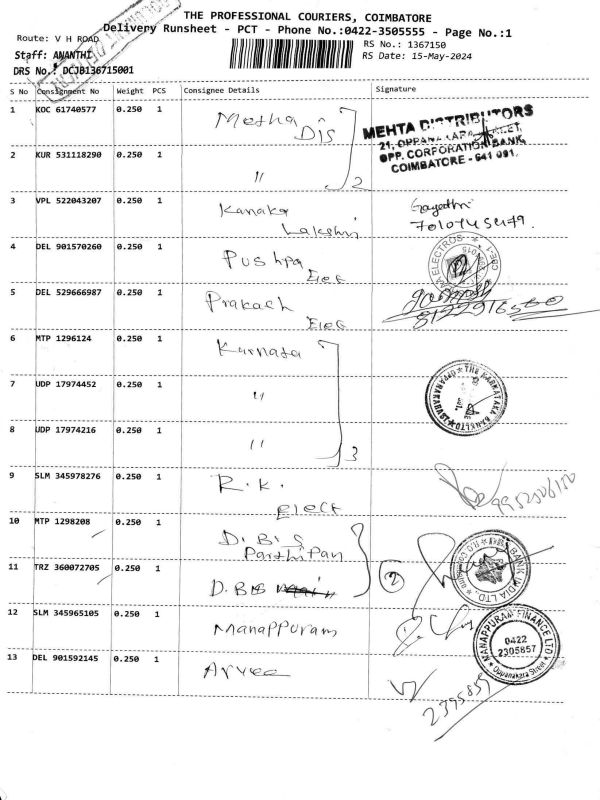 THE PROFESSIONAL COURIERS, COIMBATORE
Delivery Runsheet - PCT - Phone No.:0422-3505555 - Page No.:1
Route: V H ROAD
RS No.: 1367150
Staff: ANANTHI
RS Date: 15-May-2024
DRS No.: DCJB136715001
S No Consignment No Weight PCS Consignee Details Signature
1 KOC 61740577 0.250 1 Metha Dis
MEHTA DISTRIBUTORS
21, OPPANAKARA STREET,
OPP. CORPORATION BANK,
COIMBATORE - 641 001.
2 KUR 531118290 0.250 1 "
2
3 VPL 522043207 0.250 1 Kanaka Lakshmi
Gayathri
4 DEL 901570260 0.250 1 Pushpa Elec
5 DEL 529666987 0.250 1 Prakash Elec
6 MTP 1296124 0.250 1 Karnata
7 UDP 17974452 0.250 1 "
THE KARNATAKA BANK LTD
8 UDP 17974216 0.250 1 "
3
9 SLM 345978276 0.250 1 R.K. Elect
10 MTP 1298208 0.250 1 D.B.S Parthipan
11 TRZ 360072705 0.250 1 D.BS
2
BANK INDIA LTD
12 SLM 345965105 0.250 1 Manappuram
MANAPPURAM FINANCE LTD
0422
2305857
Oppanakara Street
13 DEL 901592145 0.250 1 Arvee
2395859